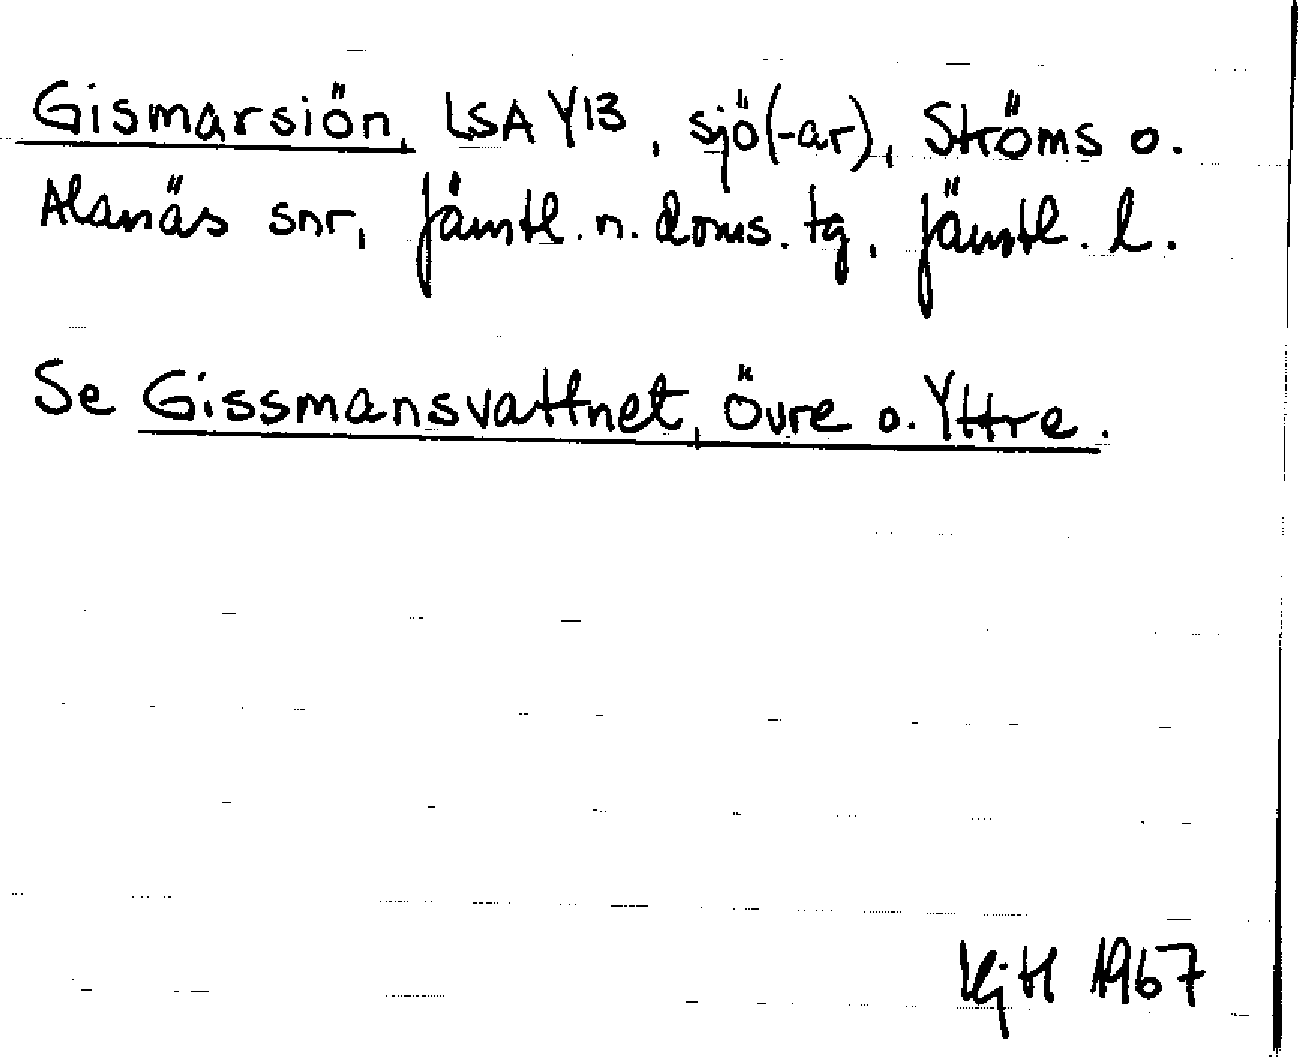 Gismarsiön, LSA Y13, sjö(-ar), Ströms o.
Alanäs snr, Jämtl. n. doms. tg, Jämtl. l.
Se Gissmansvattnet, Övre o. Yttre.
KjH 1967